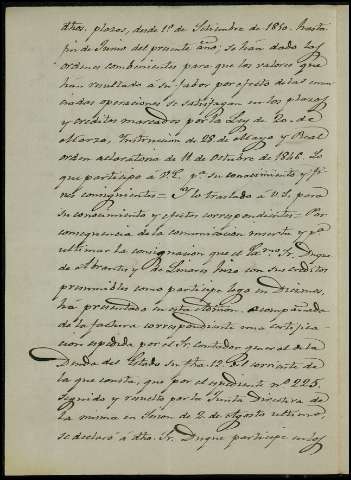 dhos. plazos, desde 1º de Setiembre de 1850. hasta
fin de Junio del presente año; se han dado las
ordenes combenientes para que los valores que
han resultado á su fabor por efecto de las enun
ciadas operaciones se satisfagan en los plazos
y creditos marcados por la Ley de 20. de
Marzo, Instruccion de 28 de Mayo y Real
orden aclaratoria de 11 de Octubre de 1846. Lo
que participo á V.E. pª su conocimiento y fi
nes consiguientes = Y lo traslado a V.S. para
su conocimiento y efectos correspondientes = Por
consequencia de la comunicacion inserta y pª
ultimar la consignacion que el Exmo. Sr. Duque
de Abrantes y de Linares hizo con sus creditos
presumibles como participe lego en Diezmos,
ha presentado en esta acompañada
de la factura correspondiente una certifica-
cion espedida por el Sr. Contador general de la
Deuda del Estado su fha. 12 del corriente de
la que consta, que por el espediente nº 225,
seguido y resuelto por la Junta Directiva de
la misma en Sesion de 2. de Agosto ultimo,
se declaró á dho. Sr. Duque participe en los